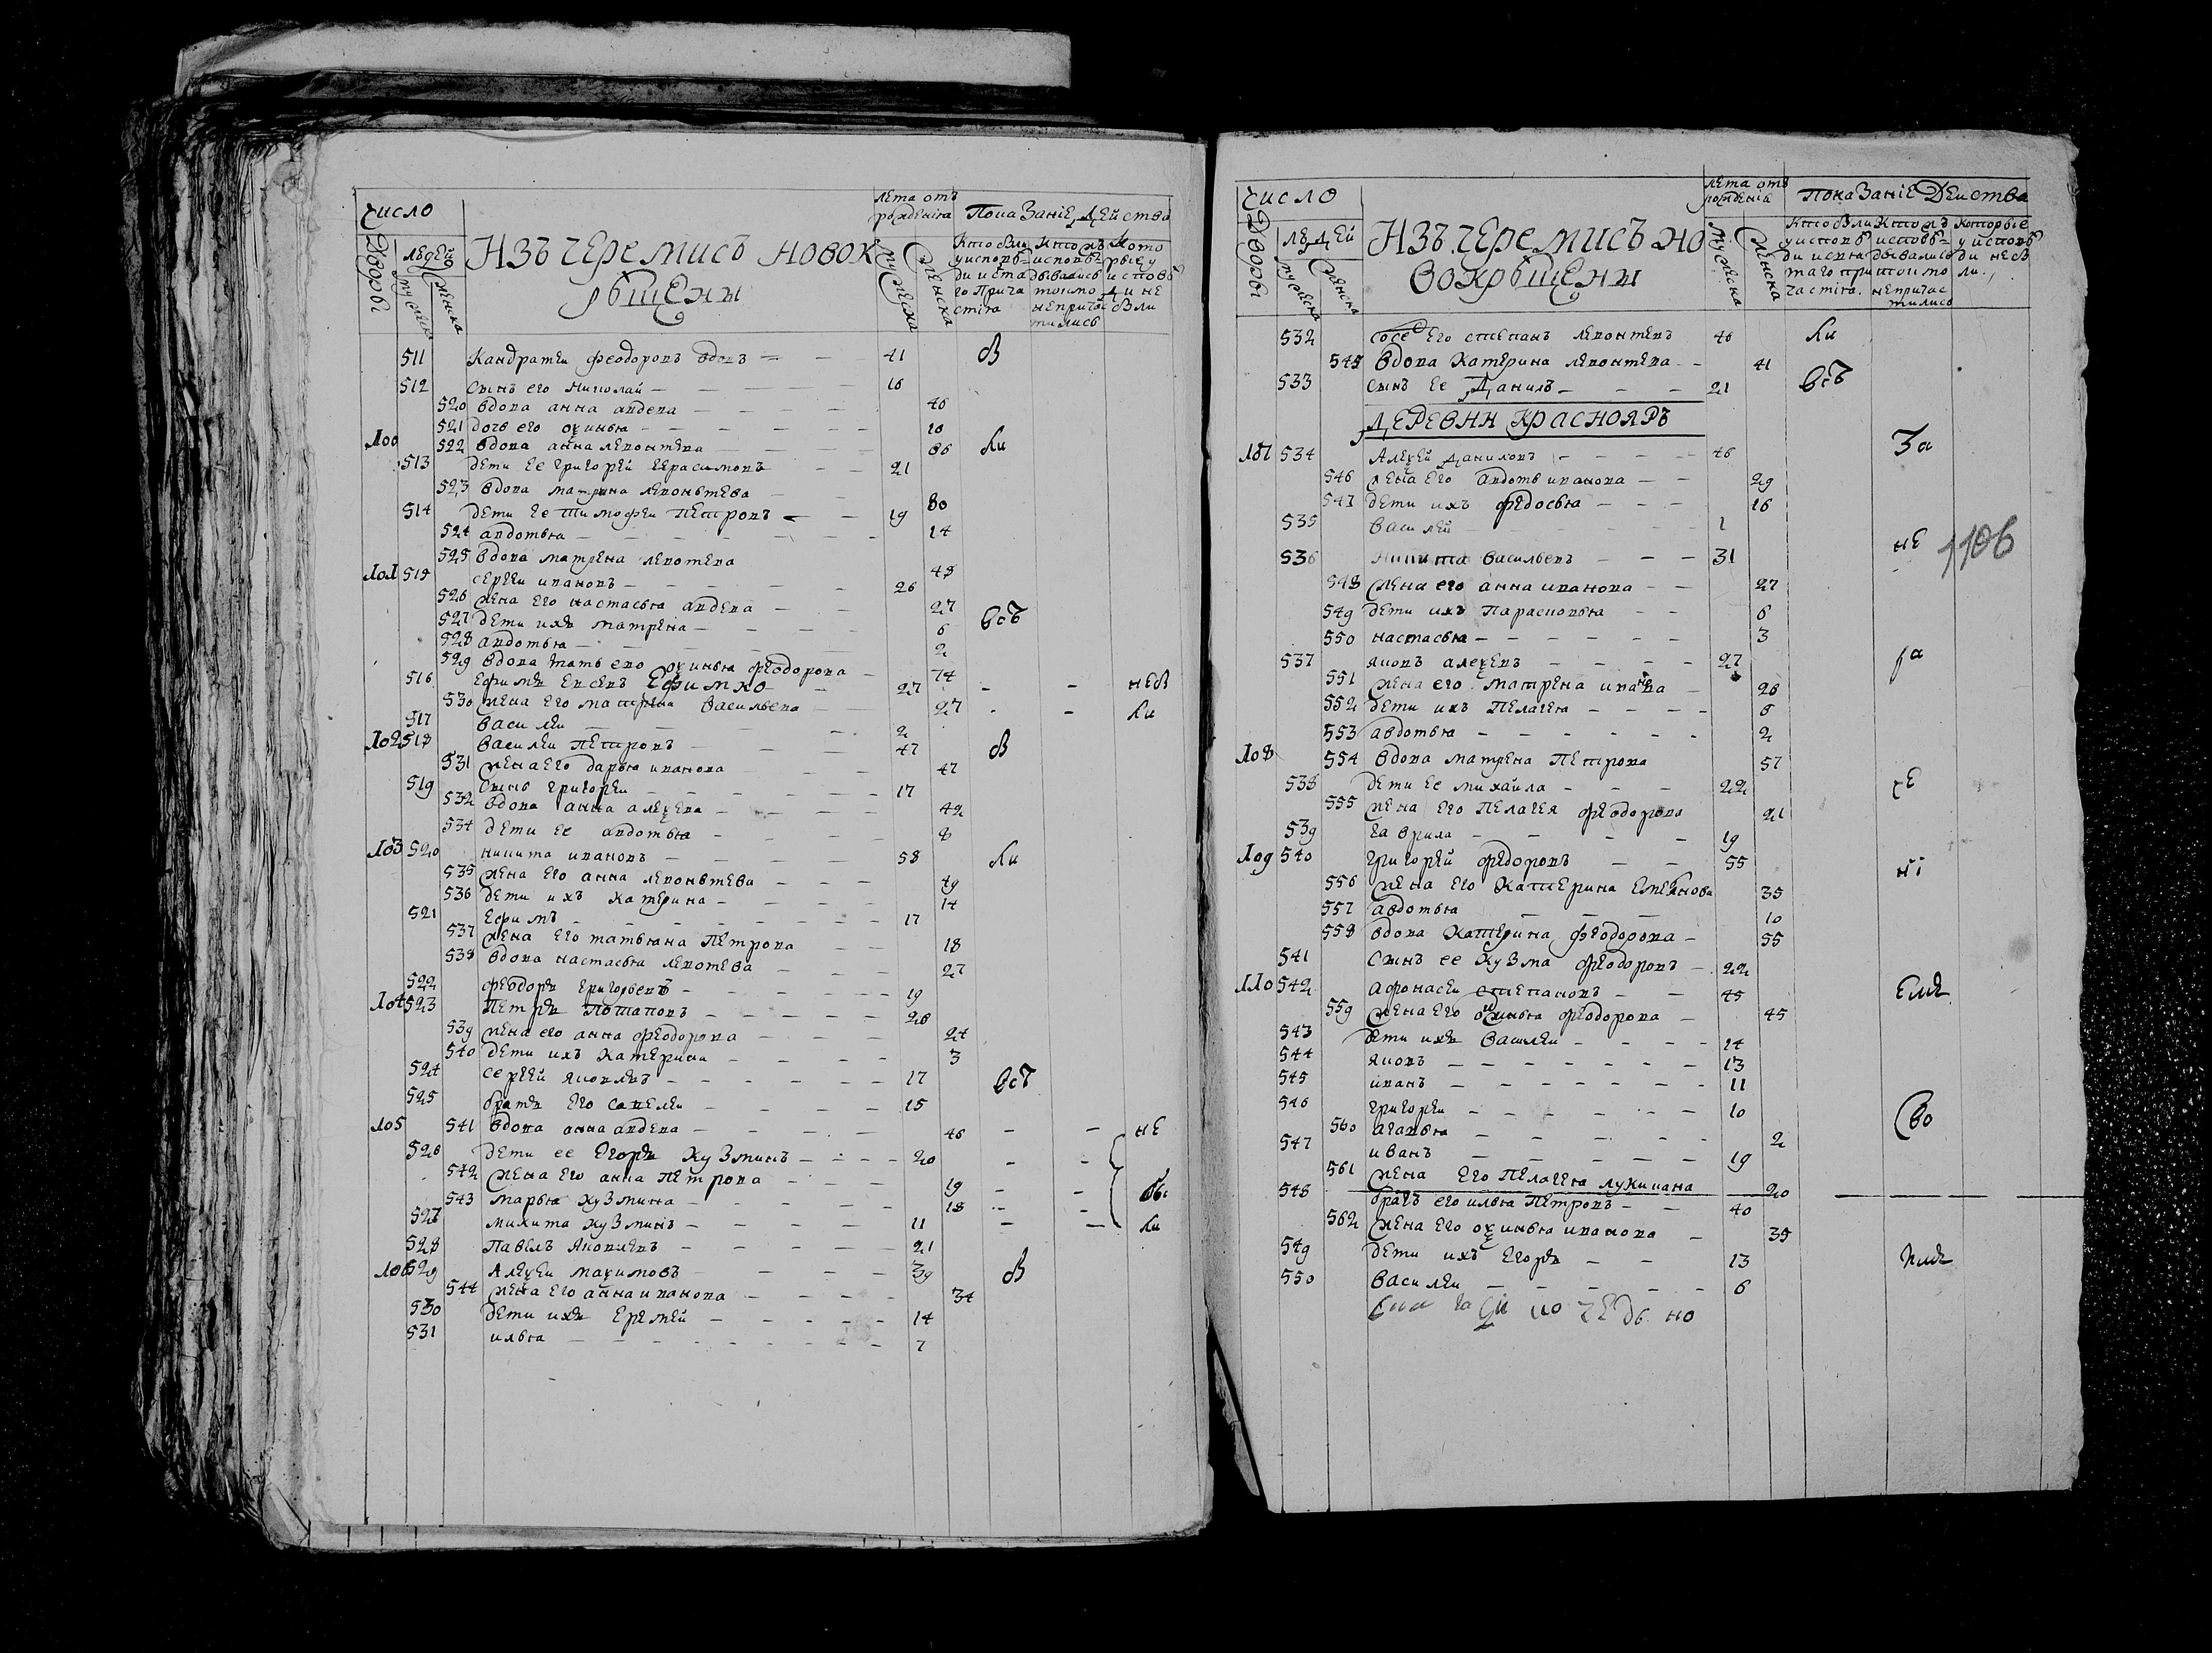 число
лета отъ рожденiя
Показанiе Действа
Дворовъ
людей
мужеска
женска
Изъ черемисъ новок
рѣщены
мужеска
женска
Кто были у исповѣди и стаго Причастiя
Кто исповѣдывались токмо не причастились
Которые у исповѣди не были
511 Кандратеи феодоровъ вдовъ 41 в
512 сынъ его Николай 16
520 вдова анна авдева 46
521 дочь его оѯинья
100 522 вдова анна левонтева 86 ли
513 дети ее григорей герасимовъ 21
523 вдова матрина левоньтева 80
514 дети ее тимофеи петровъ 19
524 авдотья 14
525 вдова матрена левотева 48
101 515 сергеи ивановъ 26
526 жена его настасья авдева 27
527 дети ихъ матрена 6 всѣ
528 авдотья 2
529 вдова мать ево оѯинья феодорова 74
516 Ефимъ Евсевъ Ефимко 27 неб
530 жена его матрена васильева 27 ли
517 васили 2
102 518 васили петровъ 47 в
531 жена его дарья иванова 47
519 сынъ григореи 17
532 вдова анна алеѯева 42
534 дети ее авдотья 8
103 520 никита ивановъ 58 ли
535 жена его анна левоньтева 49
536 дети ихъ катерина 14
521 Ефимъ 17
537 жена его татьяна Петрова 18
538 вдова настасья левотева 27
522 феѡдоръ григорьевъ 19
104 523 Петръ Потаповъ 26
539 жена его анна феодорова 24
540 дети ихъ катерина 3
524 сергеи яковлевъ 17 всѣ
525 братъ его савелеи 15
105 541 вдова анна авдева 46 не
526 дети ее Егоръ кузминъ 20
542 жена его анна петрова 19
543 марья кузмина 18 бы
527 микита кузминъ 11 ли
528 Павелъ яковлевъ 21
106 529 Алеѯеи маѯимовъ 39 в
544 жена его анна иванова 34
530 дети ихъ еремей 14
531 илья 7
число
лета отъ рожденiя
Показанiе Действа
Дворовъ
людей
мужеска
женска
Изъ черемисъ но
вокрѣщены
мужеска
женска
Кто были у исповѣди и стаго причастiя.
Кто исповѣдывались токмо не причастились
которые у исповѣди не бѣли.
532 сосе его степанъ левонтевъ 40 ли
545 вдова катерина левонтева 41
533 сынъ ее Данилъ 21 всѣ
ДЕРЕВНИ КРАСНОЯРЪ
107 534 Алеѯей даниловъ 46 За
546 жена его авдоть иванова 29
547 дети ихъ федосья 16
535 василей 1
536 никита васильевъ 31 не
1106
548 жена его анна иванова 27
549 дети ихъ Парасковья 6
550 настасья 3
537 яковъ алеѯевъ 27 ра
551 жена его матрена ивана 26
552 дети ихъ Пелагея 6
553 авдотья 2
108 554 вдова матрена петрова 57
538 дети ее михаила 22 че
555 жена его Пелагея феодорова 21
539 гаврила 19
109 540 григорей федоровъ 55 нi
556 жена его катерина Емелянова 35
557 авдотья 10
558 вдова катерина феодорова 55
541 сынъ ее кузма феодоровъ 22
110 542 афонасеи степановъ 45 емъ
559 жена его оѯинья феодорова 45
543 дети ихъ васили 14
544 яковъ 13
545 иванъ 11
546 григореи 10 сво
560 агапья 2
547 иванъ 19
561 жена его пелагея лукиiана 20
548 братъ его илья петровъ 40
562 жена его оѯинья иванова 35
549 дети ихъ егоръ 13 имъ
550 васили 6